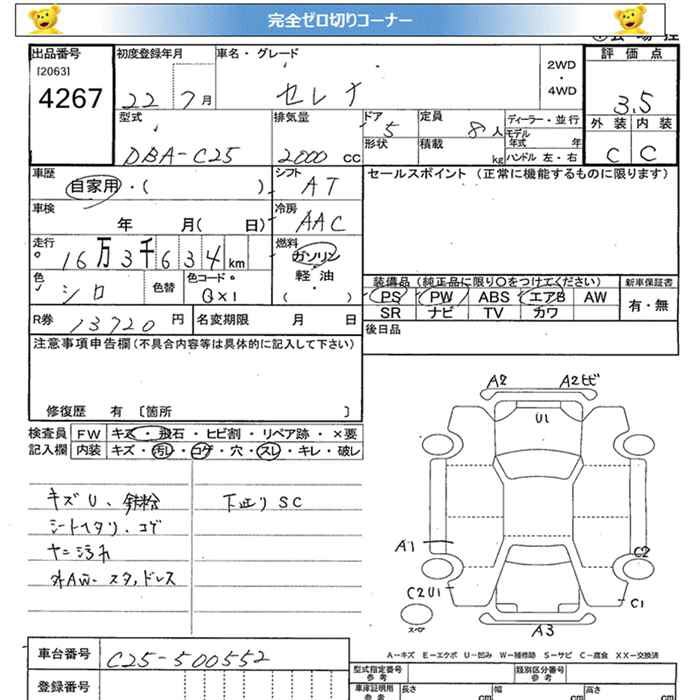 完全ゼロ切りコーナー
出品番号 初度登録年月 車名・グレード 2WD 評価点
[2063]
4267 22 7月 セレナ ・ 4WD 3.5
型式 排気量 ドア 5 定員 8人 ディーラー・並行 外装 内装
DBA-C25 2000 cc 形状 積載 kg モデル年式 年 C C
ハンドル 左・右
車歴 自家用・( ) シフト AT セールスポイント (正常に機能するものに限ります)
車検 年 月( 日) 冷房 AAC
走行 16万3千634km 燃料 ガソリン
軽油
( )
色 シロ 色替 色コード QX1 装備品 (純正品に限り○をつけてください) 新車保証書
PS PW ABS エアB AW 有・無
SR ナビ TV カワ
R券 13720 円 名変期限 月 日 後日品
注意事項申告欄(不具合内容等は具体的に記入して下さい)
修復歴 有 [箇所 ]
検査員 FW キズ・飛石・ヒビ割・リペア跡・×要
記入欄 内装 キズ・汚レ・コゲ・穴・スレ・キレ・破レ
キズU、鉄粉 下廻りSC
シートヘタリ、コゲ
ヤニ汚れ
外AW・スタッドレス
A2 A2ヒビ
U1
A1 C2
C2U1 C1
スペア
A3
A-キズ E-エクボ U-凹み W-補修跡 S-サビ C-腐食 XX-交換済
車台番号 C25-500552 型式指定番号 参考 類別区分番号 参考
登録番号 車庫証明用 参考 長さ cm 幅 cm 高さ cm